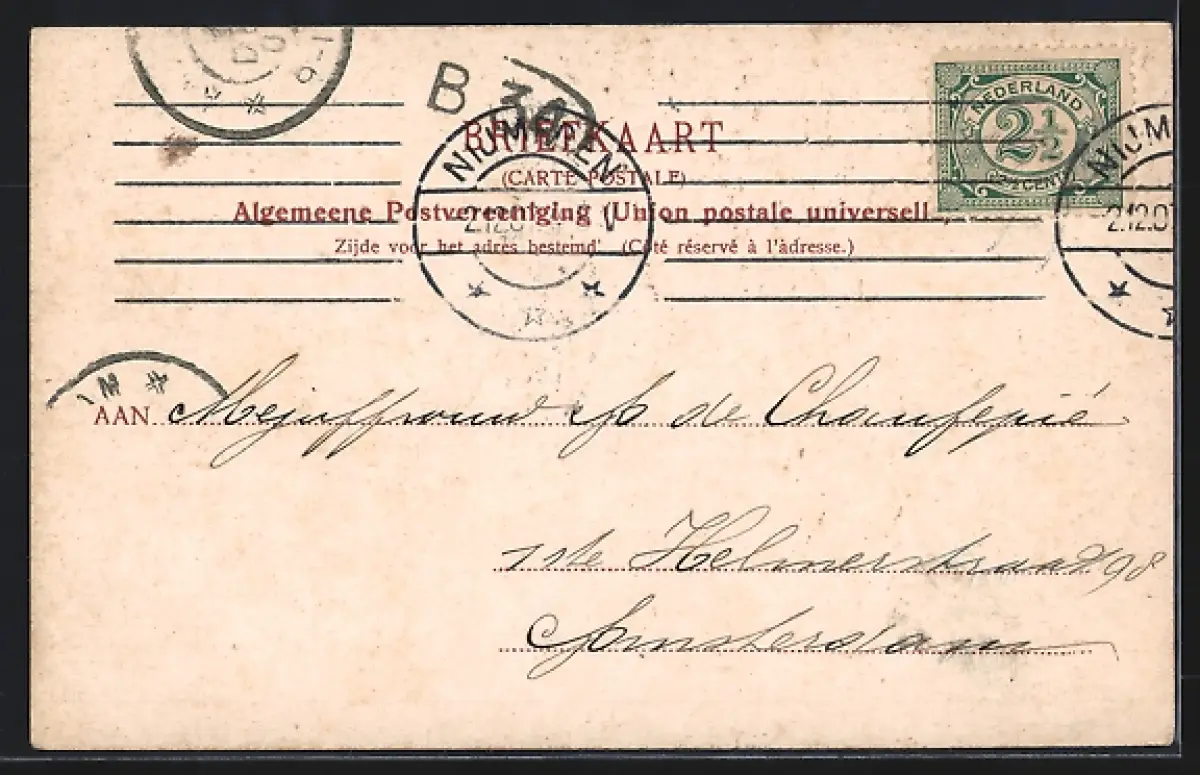 B 34
BRIEFKAART
(CARTE POSTALE)
Algemeene Postvereeniging (Union postale universelle.)
Zijde voor het adres bestemd. (Côté réservé à l'àdresse.)
NEDERLAND
2 1/2
(2½ CENT)
NIJMEGEN
2.12.07
V
NIJM
2.12.07
AAN Mejuffrouw A. de Chaufepié
1ste Helmerstraat 198
Amsterdam